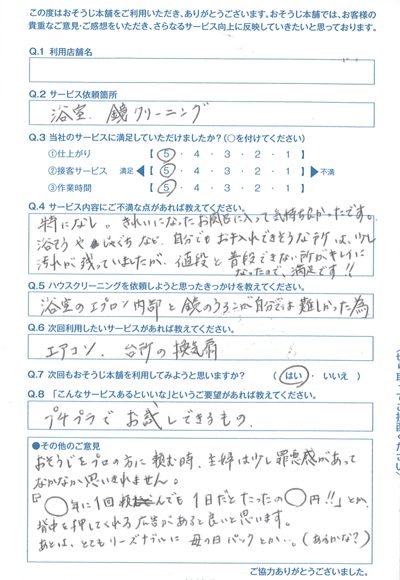 この度はおそうじ本舗をご利用いただき、ありがとうございます。おそうじ本舗では、お客様の
貴重なご意見・ご感想をいただき、さらなるサービス向上に反映していきたいと思っております。
Q.1 利用店舗名
Q.2 サービス依頼箇所
浴室. 鏡クリーニング
Q.3 当社のサービスに満足していただけましたか？（○を付けてください）
①仕上がり 【 5 ・ 4 ・ 3 ・ 2 ・ 1 】
②接客サービス 満足 ◀ 【 5 ・ 4 ・ 3 ・ 2 ・ 1 】 ▶ 不満
③作業時間 【 5 ・ 4 ・ 3 ・ 2 ・ 1 】
Q.4 サービス内容にご不満な点があれば教えてください。
特になし。きれいになったお風呂に入って気持ち良かったです。
浴そうや じゃぐちなど、自分でもお手入れできそうな所は、少し
汚れが残っていましたが、値段と普段できない所がキレイに
なったので、満足です!!
Q.5 ハウスクリーニングを依頼しようと思ったきっかけを教えてください。
浴室のエプロン内部と鏡のうろこが自分では難しかった為
Q.6 次回利用したいサービスがあれば教えてください。
エアコン. 台所の換気扇
Q.7 次回もおそうじ本舗を利用してみようと思いますか？ （ はい ・ いいえ ）
Q.8 「こんなサービスあるといいな」というご要望があれば教えてください。
プチプラでお試しできるもの.
●その他のご意見
おそうじをプロの方に頼む時、主婦は少し罪悪感があって
なかなか思いきれません。
『○年に1回 頼んでも 1日だとたったの○円!!』とか、
背中を押してくれる広告があると良いと思います。
あとは、とてもリーズナブルに 母の日パックとか…。(あるかな?)
ご協力ありがとうございました。